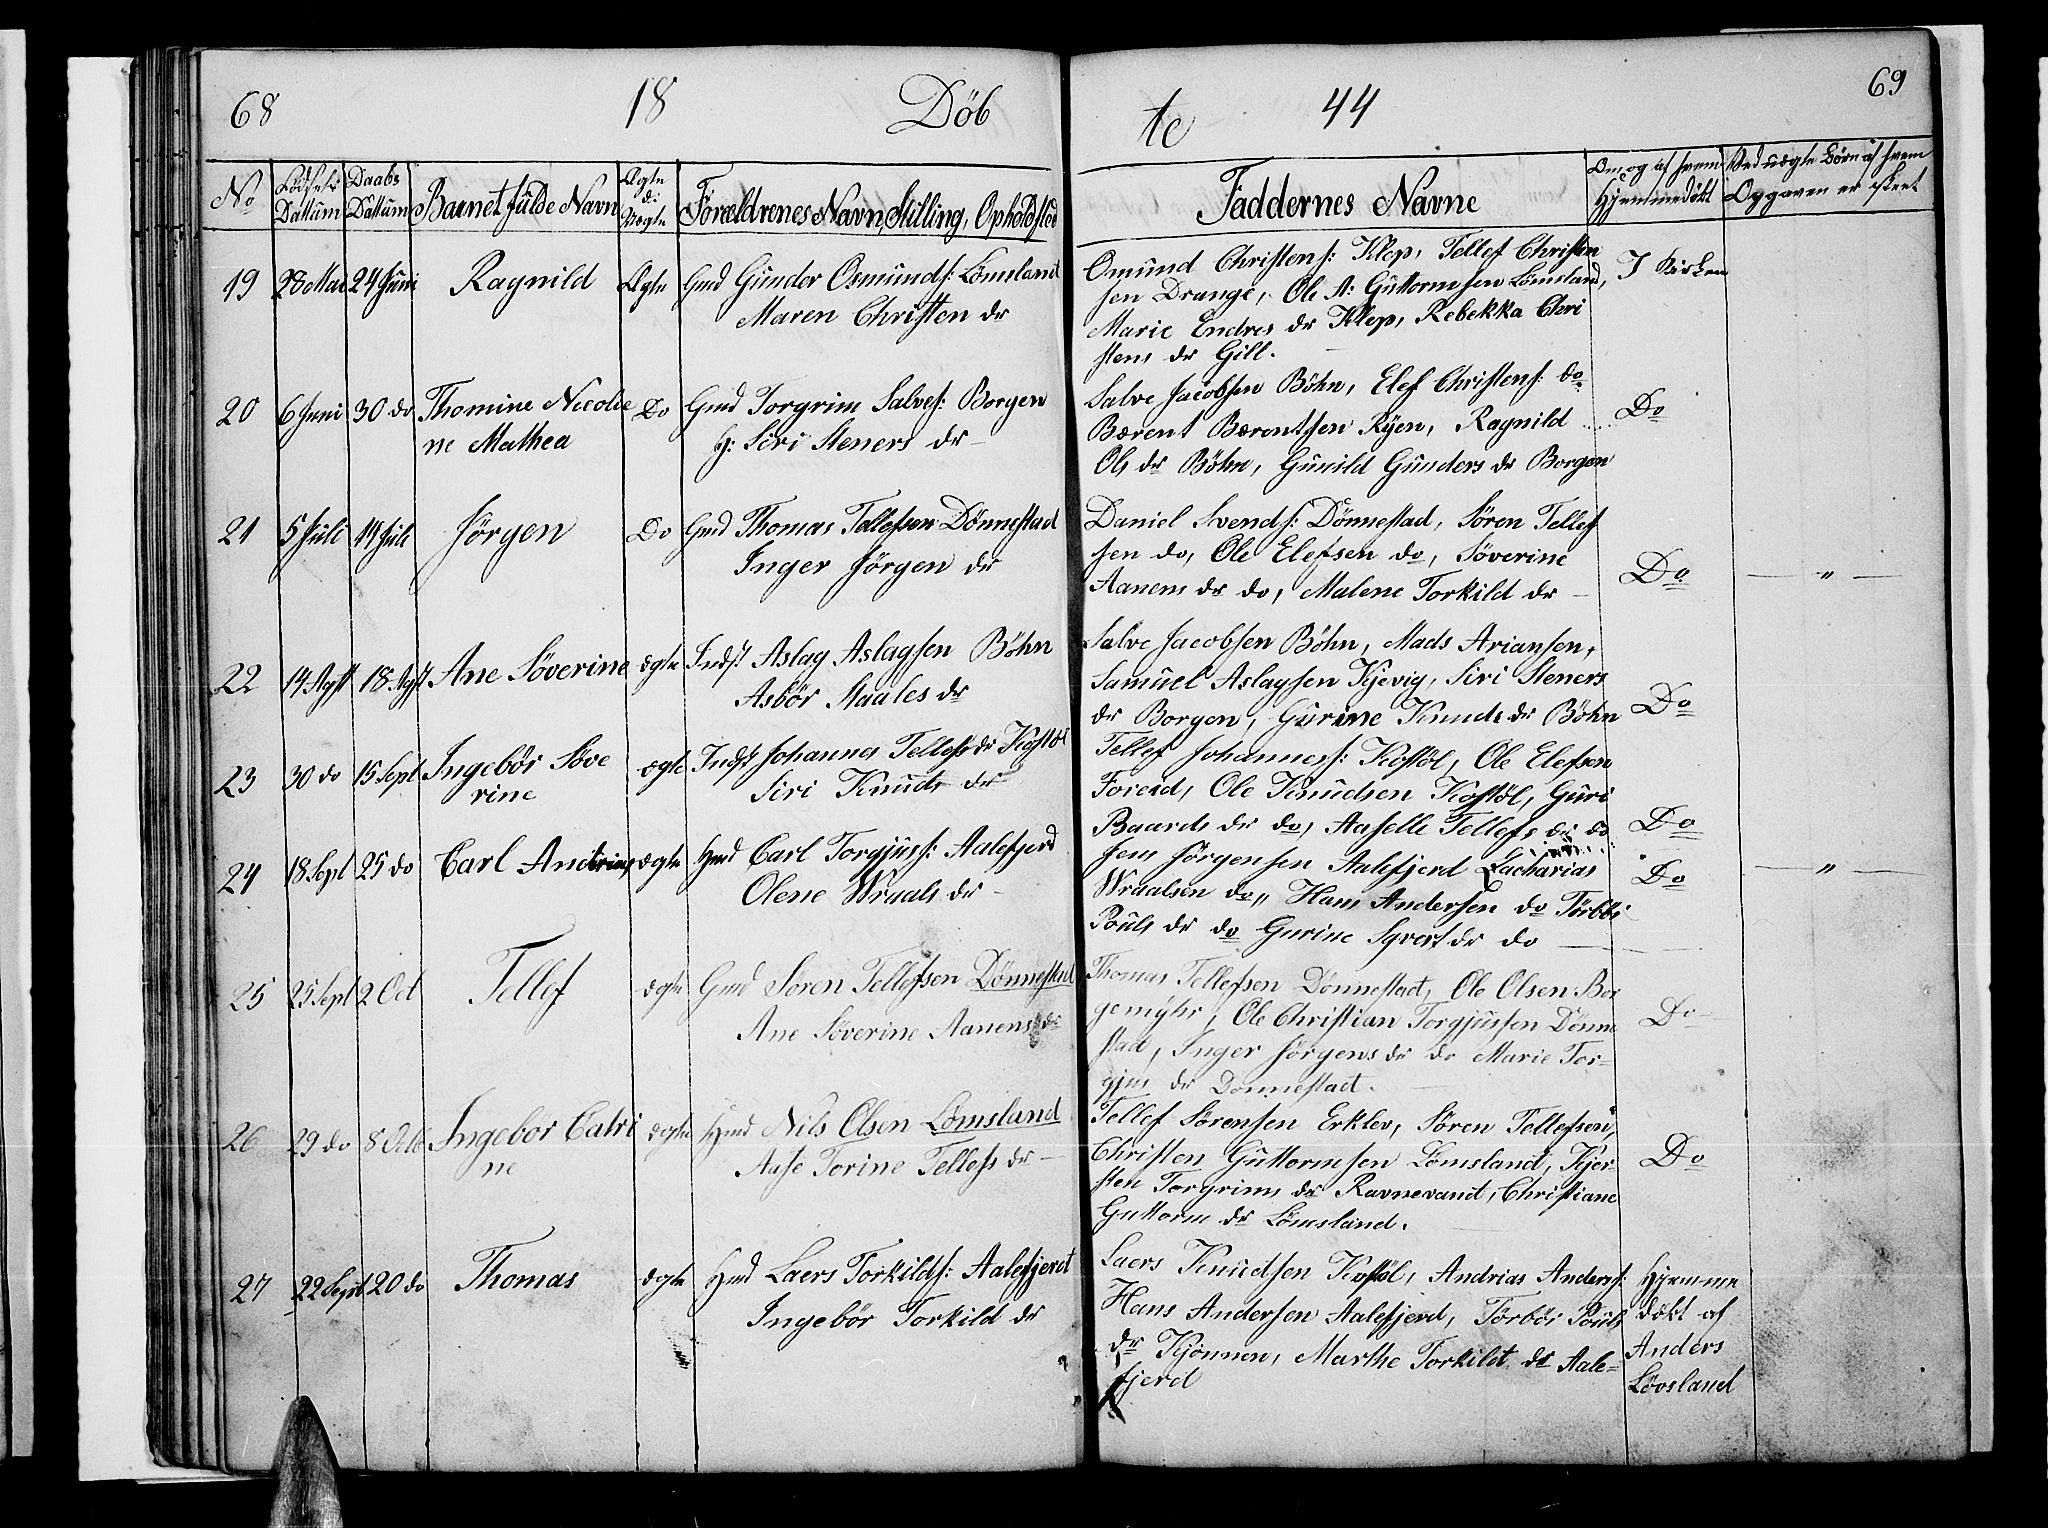 68 18 Döb
te 44 69
No Födsels Dattum Daabs Dattum Barnet fulde Navn Ægte el: Uægte Forældrenes Navn, Stilling, Opholdsted
Faddernes Navne Om og af hvem Hjemmedøbt Ved uægte Börn af hvem Opgaven er skeet
19 28 Mai 24 Juni Ragnild Ægte Gmd Gunder Osmunds: Lømsland
Maren Christen dr
Omund Christens: Klep, Tellef Christen
sen Drange, Ole A: Guttormsen Lömsland,
Marie Endres dr Klep, Rebekka Chri
stens dr Gill.
I Kirken
20 6 Juni 30 do Thomine Nicolie Do Gmd Torgrim Salves: Borgen
ne Mathea H: Siri Steners dr
Salve Jacobsen Böhn, Elef Christens: do
Bærent Bærentsen Rÿen, Ragnild
Ols dr Böhn, Gunild Gunders dr Borgen
Do
21 5 Juli 14 Juli Jörgen Do Gmd Thomas Tellefsen Dönnestad
Inger Jörgen dr
Daniel Svends: Dönnestad, Sören Tellef
sen do, Ole Elefsen do, Söverine
Aanens dr do, Malene Torkild dr
Do — " —
22 14 Agst 18 Agst Ane Söverine ægte Indst Aslag Aslagsen Böhn
Asbör Staales dr
Salve Jacobsen Böhn, Mads Ariansen,
Samuel Aslagsen Kjevig, Siri Steners
dr Borgen, Gurine Knuds dr Böhn
Do
23 30 do 15 Sept Ingebör Söve ægte Indst Johannes Tellefs dr Kostöl
rine Siri Knuds dr
Tellef Johannes: Kostöl, Ole Elefsen
Foreid, Ole Knudsen Kostöl, Guri
Baards dr do, Aaselle Tellefs dr do
Do
24 18 Sept 25 do Carl Andrias ægte Hmd Carl Torgjus: Aalefjerd
Olene Wraals dr
Jens Jörgensen Aalefjerd Zacharias
Wraalsen do, Hans Andersen do Törbör
Pouls dr do Gurine Sÿvert dr do
Do — " —
25 25 Sept 2 Oct Tellef ægte Gmd Sören Tellefsen Dönnestad
Ane Söverine Aanens dr
Thomas Tellefsen Dönnestad, Ole Olsen Bor
gemÿhr, Ole Christian Torgjussen Dönne
stad, Inger Jörgens dr do Marie Tor-
gjus dr Donnestad.
Do
26 29 do 8 Octb Ingebor Catri ægte Hmd Nils Olsen Lömsland
ne Aase Torine Tellefs dr
Tellef Sörensen Erklev, Sören Tellefsen,
Christen Guttormsen Lömsland, Kjer-
sten Torgrims dr Ravnevand, Christiane
Guttorm dr Lömsland.
Do
27 22 Sept 20 do Thomas ægte Hmd Laers Torkilds: Aalefjerd
Ingebör Torkild dr
Laers Knudsen Kostöl, Andrias Anders:
Hans Andersen Aalefjerd, Törbör Pouls
dr Kjönnen, Marthe Torkild dr Aale-
fjerd
Hjemme
dökt af
Anders
Lövsland